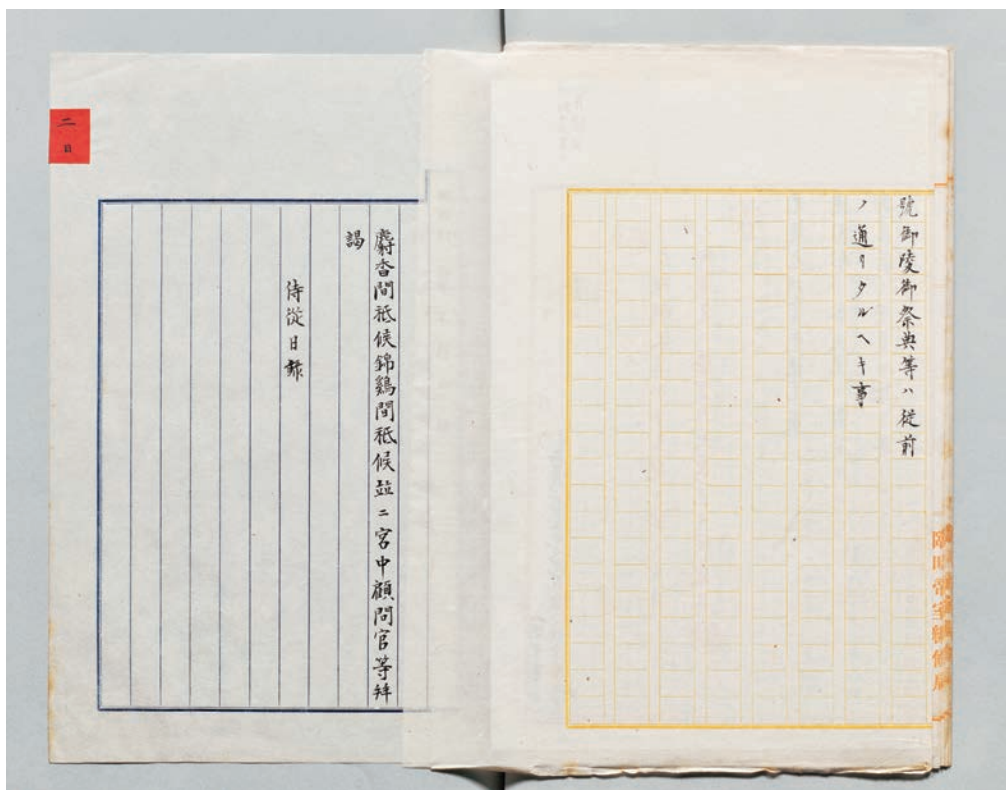 號御陵御祭典等ハ從前
ノ通リタルヘキ事
麝香間祗候錦鷄間祗候並ニ宮中顧問官等拜
謁
侍從日錄
二
日